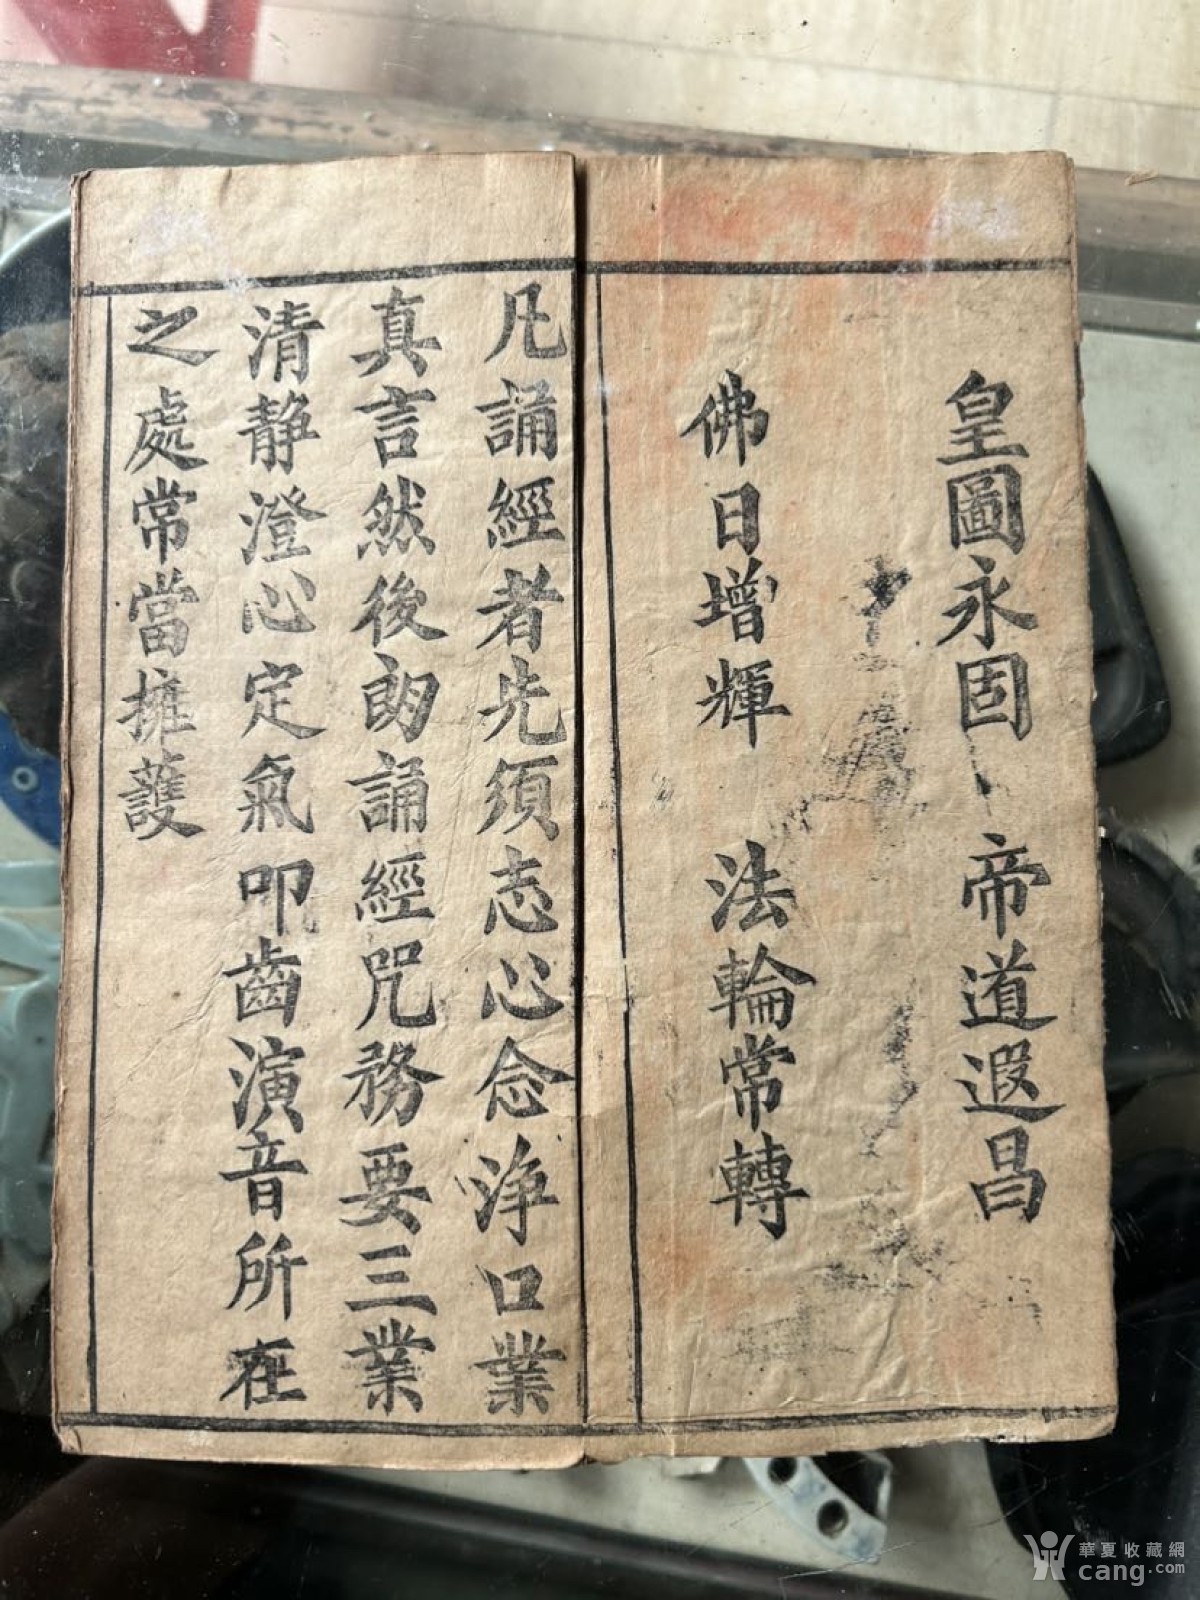 皇圖永固 帝道遐昌
佛日增輝 法輪常轉
凡誦經者先須志心念淨口業
真言然後朗誦經咒務要三業
清静澄心定氣叩齒演音所在
之處常當擁護
華夏收藏網
cang.com